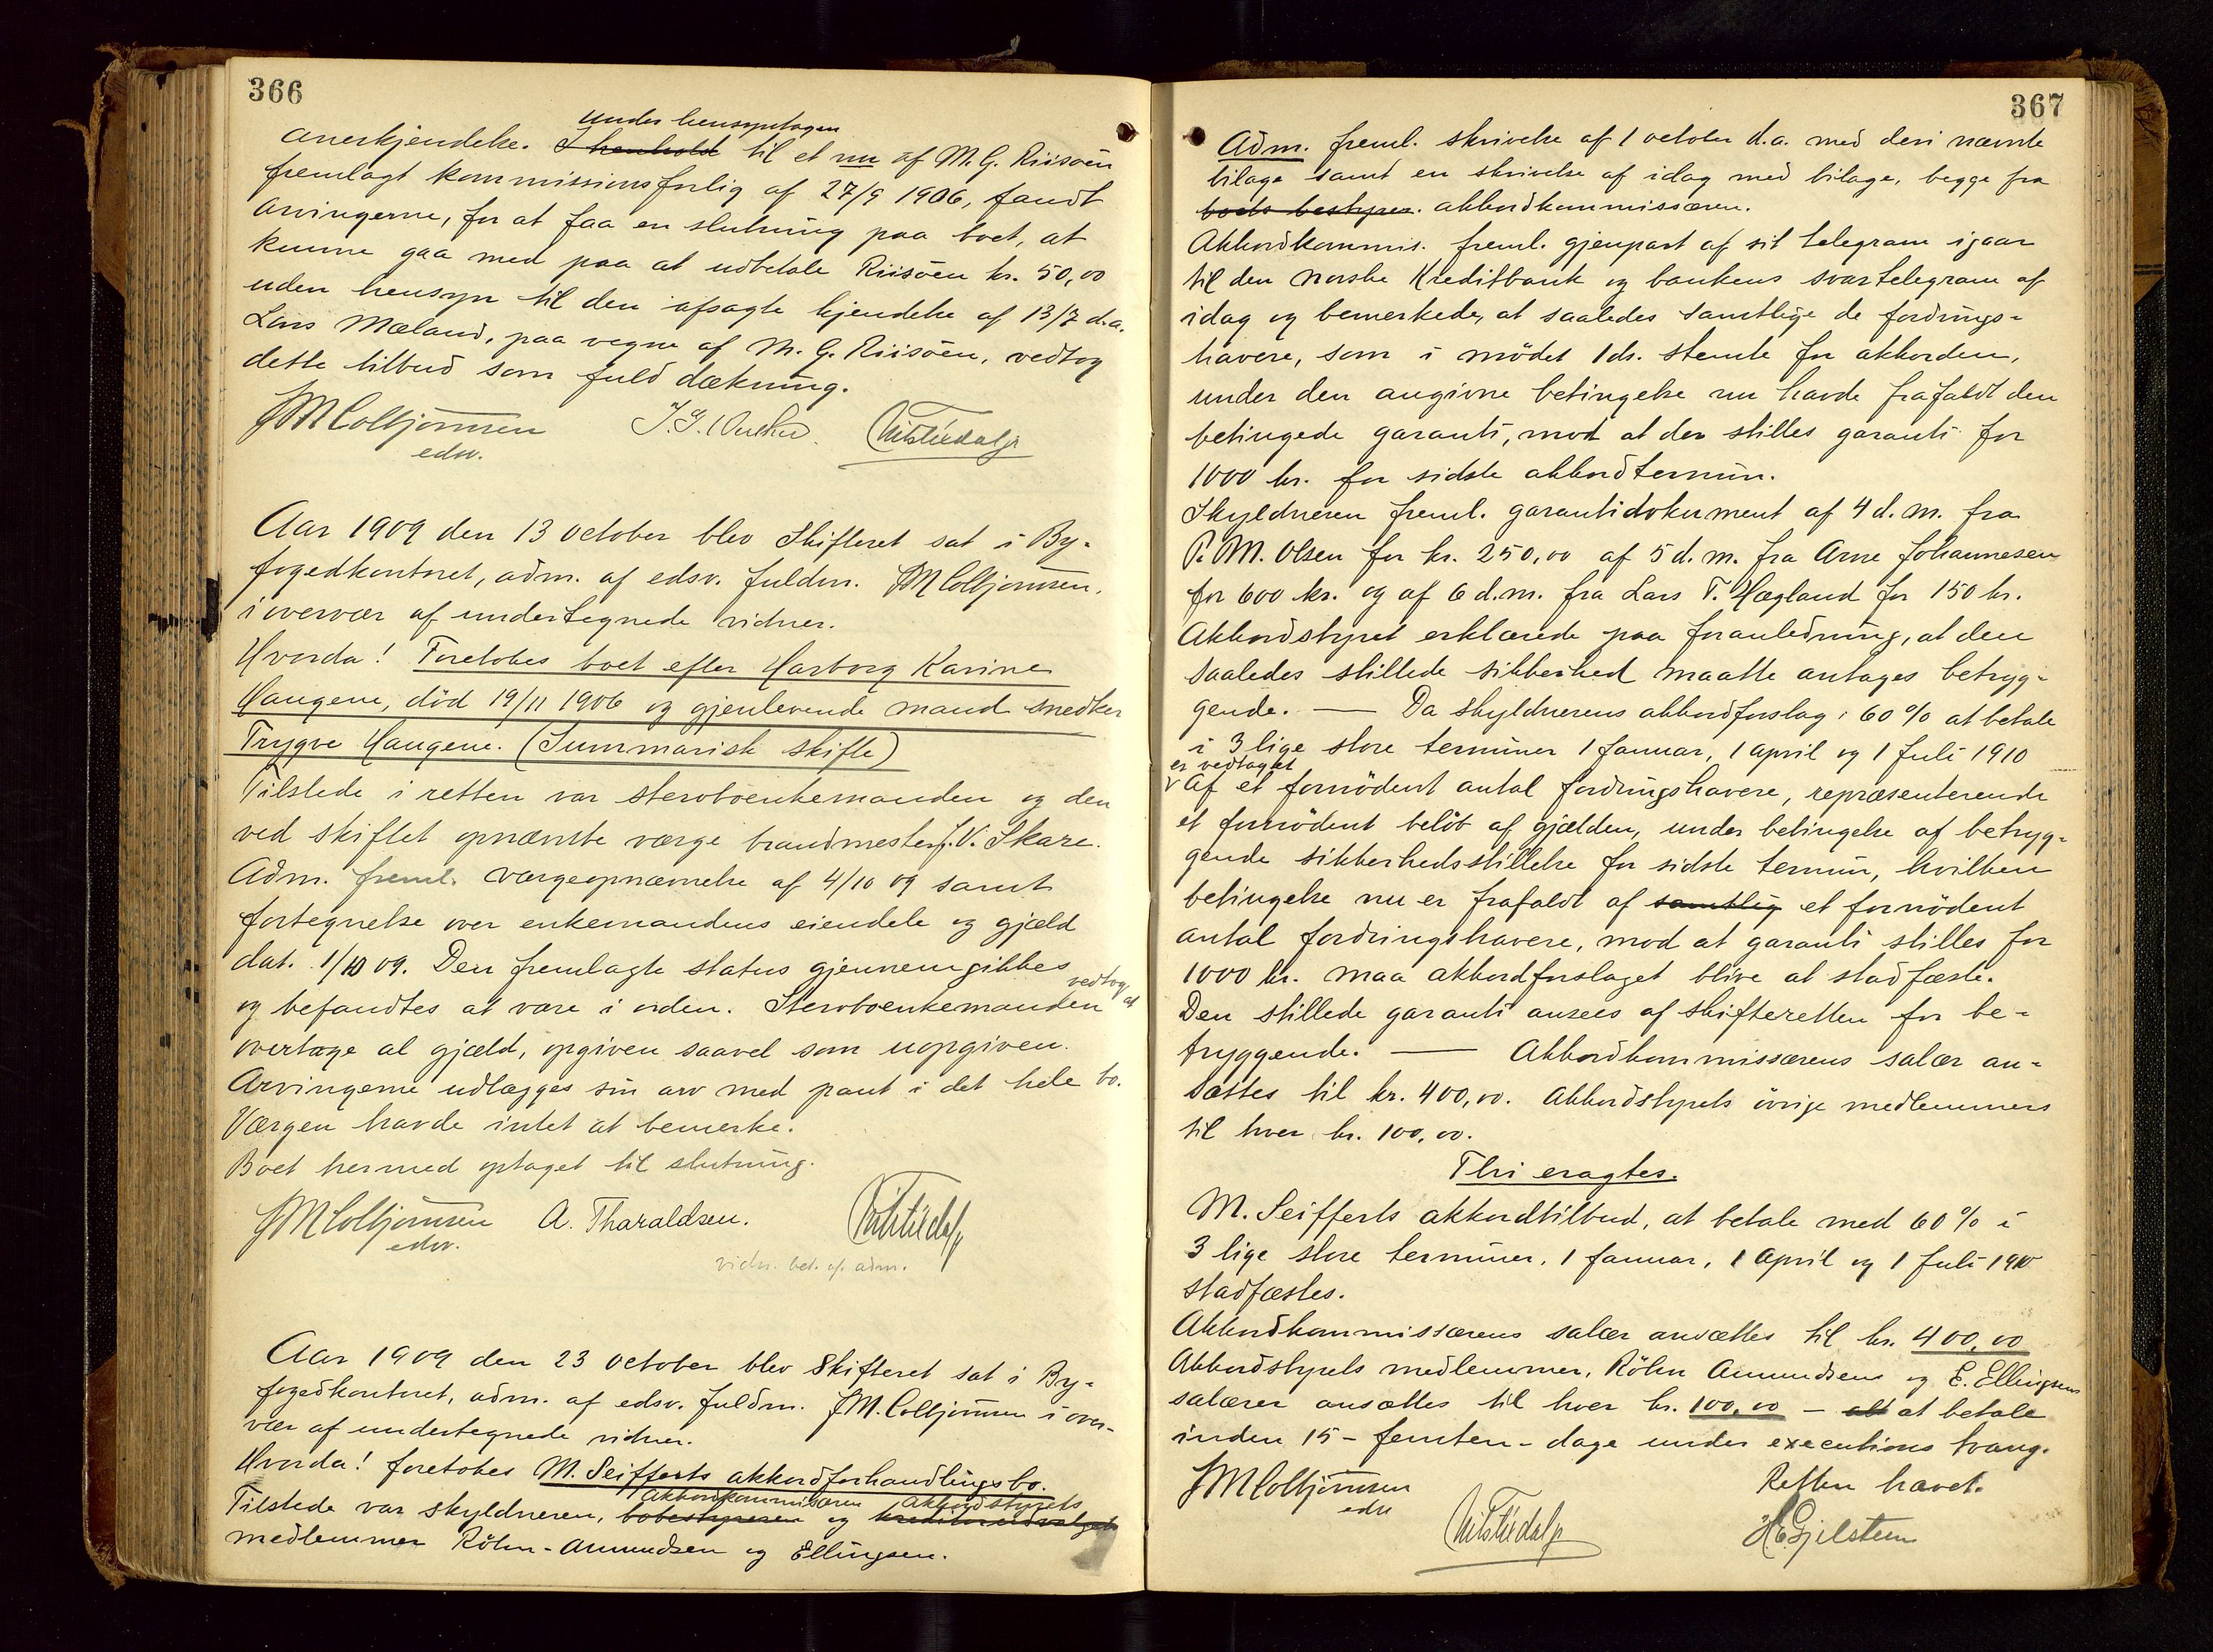 366
under hensyntagen
anerkjendelse. I henhold til et nu af M. G. Riisøen
fremlagt kommissionsforlig af 27/9 1906, fandt
arvingerne, for at faa en slutning paa boet, at
kunne gaa med paa at udbetale Riisöen kr. 50,00
uden hensyn til den afsagte kjendelse af 13/7 d.a.
Lars Mæland, paa vegne af M. G. Riisöen, vedtog
dette tilbud som fuld dækning.
JM Colbjörnsen
edsv.
Aar 1909 den 13 october blev Skifteret sat i By-
fogedkontoret, adm. af edsv. fuldm. JM Colbjörnsen.
i overvær af undertegnede vidner.
Hvorda! Foretokes boet efter Harborg Karine
Haugene, död 19/11 1906 og gjenlevende mand snedker
Trygve Haugene. (Summarisk skifte)
Tilstede i retten var stervboenkemanden og den
ved skiftet opnævnte værge brandmester J. V. Skare.
Adm. freml. værgeopnævnelse af 4/10 09 samt
fortegnelse over enkemandens eiendele og gjæld
dat. 1/10 09. Den fremlagte status gjennemgikkes
og befandtes at være i orden. Stervboenkemanden vedtog at
overtage al gjæld, opgiven saavel som uopgiven.
Arvingerne udlægges sin arv med pant i det hele bo.
Værgen havde intet at bemerke.
Boet hermed optaget til slutning.
JM Colbjörnsen A. Tharaldsen.
edsv.
vidn. bet. af adm.
Aar 1909 den 23 october blev Skifteret sat i By-
fogedkontoret, adm. af edsv. fuldm. JM. Colbjörnsen i over-
vær af undertegnede vidner.
Hvorda! foretokes M. Seifferts akkordforhandlingsbo.
akkordkommissæren akkordstyrets
Tilstede var skyldneren, bobestyreren og kreditorudvalgets
medlemmer Röhn-Amundsen og Ellingsen.
367
Adm. freml. skrivelse af 1 october d.a. med deri nævnte
bilage samt en skrivelse af idag med bilage, begge fra
boets bestyrer. akkordkommissæren.
Akkordkommis. freml. gjenpart af sit telegram igaar
til den Norske Kreditbank og bankens svartelegram af
idag og bemerkede, at saaledes samtlige de fordrings-
havere, som i mödet 1 ds. stemte for akkorden,
under den angivne betingelse nu havde frafaldt den
betingede garanti, mod at der stilles garanti for
1000 kr. for sidste akkordtermin.
Skyldneren freml. garantidokument af 4 d. m. fra
P. M. Olsen for kr. 250,00 af 5 d. m. fra Arne Johannesen
for 600 kr. og af 6 d.m. fra Lars T. Hægland for 150 kr.
Akkordstyret erklærede paa foranledning, at den
saaledes stillede sikkerhed maatte antages betryg-
gende. — Da skyldnerens akkordforslag: 60 % at betale
i 3 lige store terminer 1 Januar, 1 april og 1 Juli 1910
er vedtaget
af et fornödent antal fordringshavere, repræsenterende
et fornödent belöb af gjælden, under betingelse af betryg-
gende sikkerhedsstillelse for sidste termin, hvilken
betingelse nu er frafaldt af samtlig et fornödent
antal fordringshavere, mod at garanti stilles for
1000 kr. maa akkordforslaget blive at stadfæste.
Den stillede garanti ansees af skifteretten for be-
tryggende. — Akkordkommissærens salær an-
sættes til kr. 400,00. Akkordstyrets övrige medlemmers
til hver kr. 100,00.
Thi eragtes.
M. Seifferts akkordtilbud, at betale med 60 % i
3 lige store terminer, 1 Januar, 1 April og 1 Juli 1910
stadfæstes.
Akkordkommissærens salær ansættes til kr. 400,00
Akkordstyrets medlemmer, Röhn Amundsens og E. Ellingsens
salærer ansættes til hver kr. 100,00 – alt at betale
inden 15 - femten - dage under executions tvang.
JM Colbjörnsen Retten hævet.
edsv
H. E. Gjelsteen